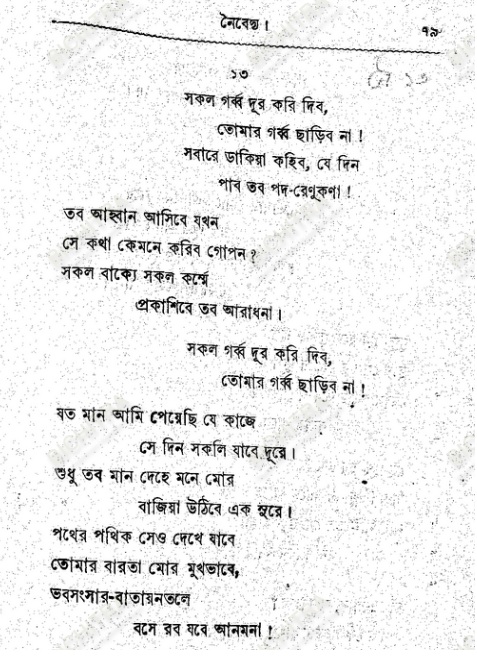 নৈবেদ্য।
৭৯
১৩
নৈ ১৩
সকল গর্ব্ব দূর করি দিব,
তোমার গর্ব্ব ছাড়িব না!
সবারে ডাকিয়া কহিব, যে দিন
পাব তব পদ-রেণুকণা!
তব আহ্বান আসিবে যখন
সে কথা কেমনে করিব গোপন?
সকল বাক্যে সকল কর্ম্মে
প্রকাশিবে তব আরাধনা।
সকল গর্ব্ব দূর করি দিব,
তোমার গর্ব্ব ছাড়িব না!
যত মান আমি পেয়েছি যে কাজে
সে দিন সকলি যাবে দূরে।
শুধু তব মান দেহে মনে মোর
বাজিয়া উঠিবে এক সুরে।
পথের পথিক সেও দেখে যাবে
তোমার বারতা মোর মুখভাবে,
ভবসংসার-বাতায়নতলে
বসে রব যবে আনমনা!